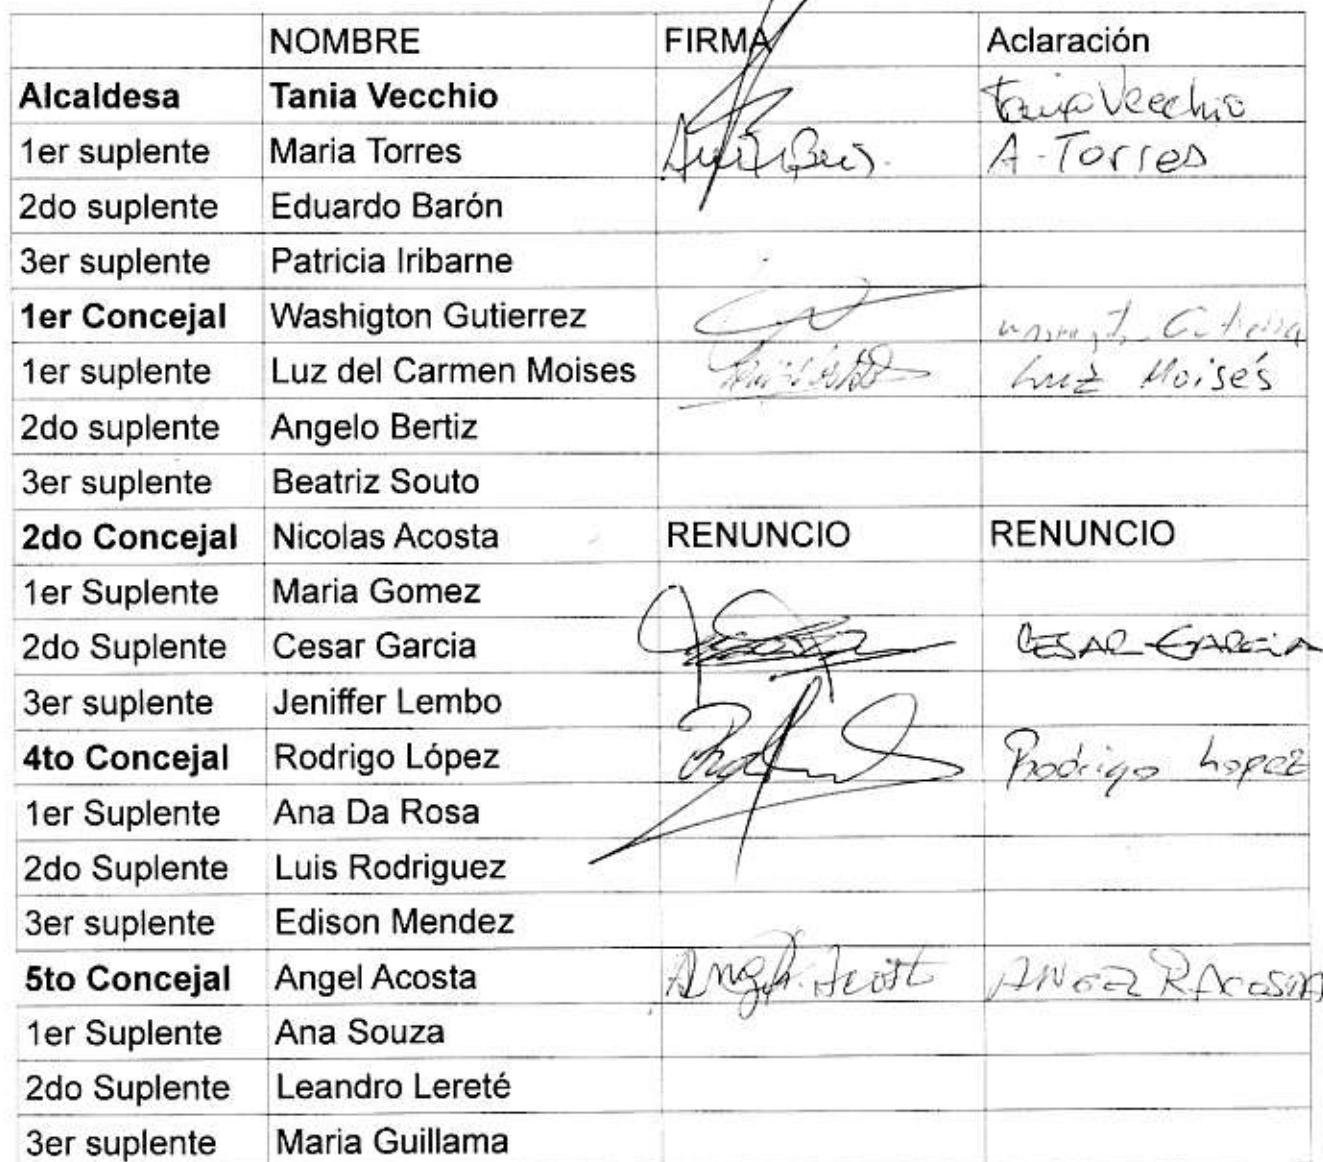 NOMBRE FIRMA Aclaración
Alcaldesa Tania Vecchio Tania Vecchio
1er suplente Maria Torres A-Torres
2do suplente Eduardo Barón
3er suplente Patricia Iribarne
1er Concejal Washigton Gutierrez
1er suplente Luz del Carmen Moises Luz Moisés
2do suplente Angelo Bertiz
3er suplente Beatriz Souto
2do Concejal Nicolas Acosta RENUNCIO RENUNCIO
1er Suplente Maria Gomez
2do Suplente Cesar Garcia CESAR GARCIA
3er suplente Jeniffer Lembo
4to Concejal Rodrigo López Rodrigo Lopez
1er Suplente Ana Da Rosa
2do Suplente Luis Rodriguez
3er suplente Edison Mendez
5to Concejal Angel Acosta ANGEL R ACOSTA
1er Suplente Ana Souza
2do Suplente Leandro Lereté
3er suplente Maria Guillama